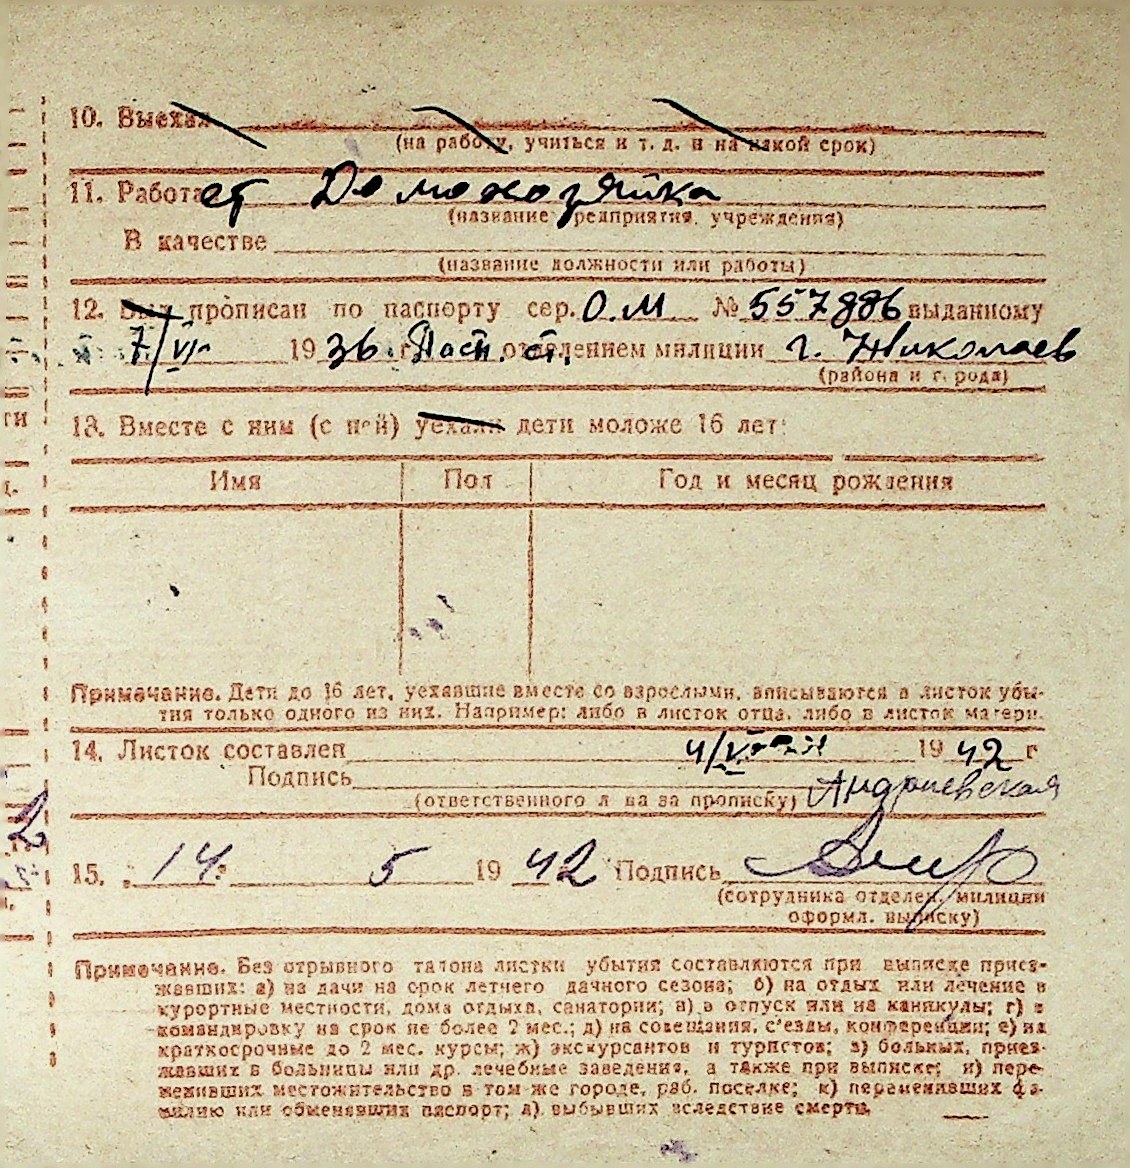 10. Выехал
(на работу, учиться и т. д. и на какой срок)
11. Работает Домохозяйка
(название предприятия, учреждения)
В качестве
(название должности или работы)
12. Был прописан по паспорту сер. О.М № 557886 выданному
7/VI 1936 г. Пасп. ст. отделением милиции г. Николаев
(района и города)
13. Вместе с ним (с ней) уехали дети моложе 16 лет:
Имя Пол Год и месяц рождения
Примечание. Дети до 16 лет, уехавшие вместе со взрослыми, вписываются в листок убы-
тия только одного из них. Например: либо в листок отца, либо в листок матери.
14. Листок составлен 4/V 1942 г
Подпись Андриевская
(ответственного лица за прописку)
15. 14 5 1942 Подпись
(сотрудника отделен. милиции
оформл. выписку)
Примечание. Без отрывного талона листки убытия составляются при выписке приез-
жавших: а) на дачи на срок летнего дачного сезона; б) на отдых или лечение в
курортные местности, дома отдыха, санатории; в) в отпуск или на каникулы; г) в
командировку на срок не более 2 мес.; д) на совещания, с'езды, конференции; е) на
краткосрочные до 2 мес. курсы; ж) экскурсантов и туристов; з) больных, приез-
жавших в больницы или др. лечебные заведения, а также при выписке; и) пере-
менивших местожительство в том же городе, раб. поселке; к) переменивших фа-
милию или обменявших паспорт; л) выбывших вследствие смерти.